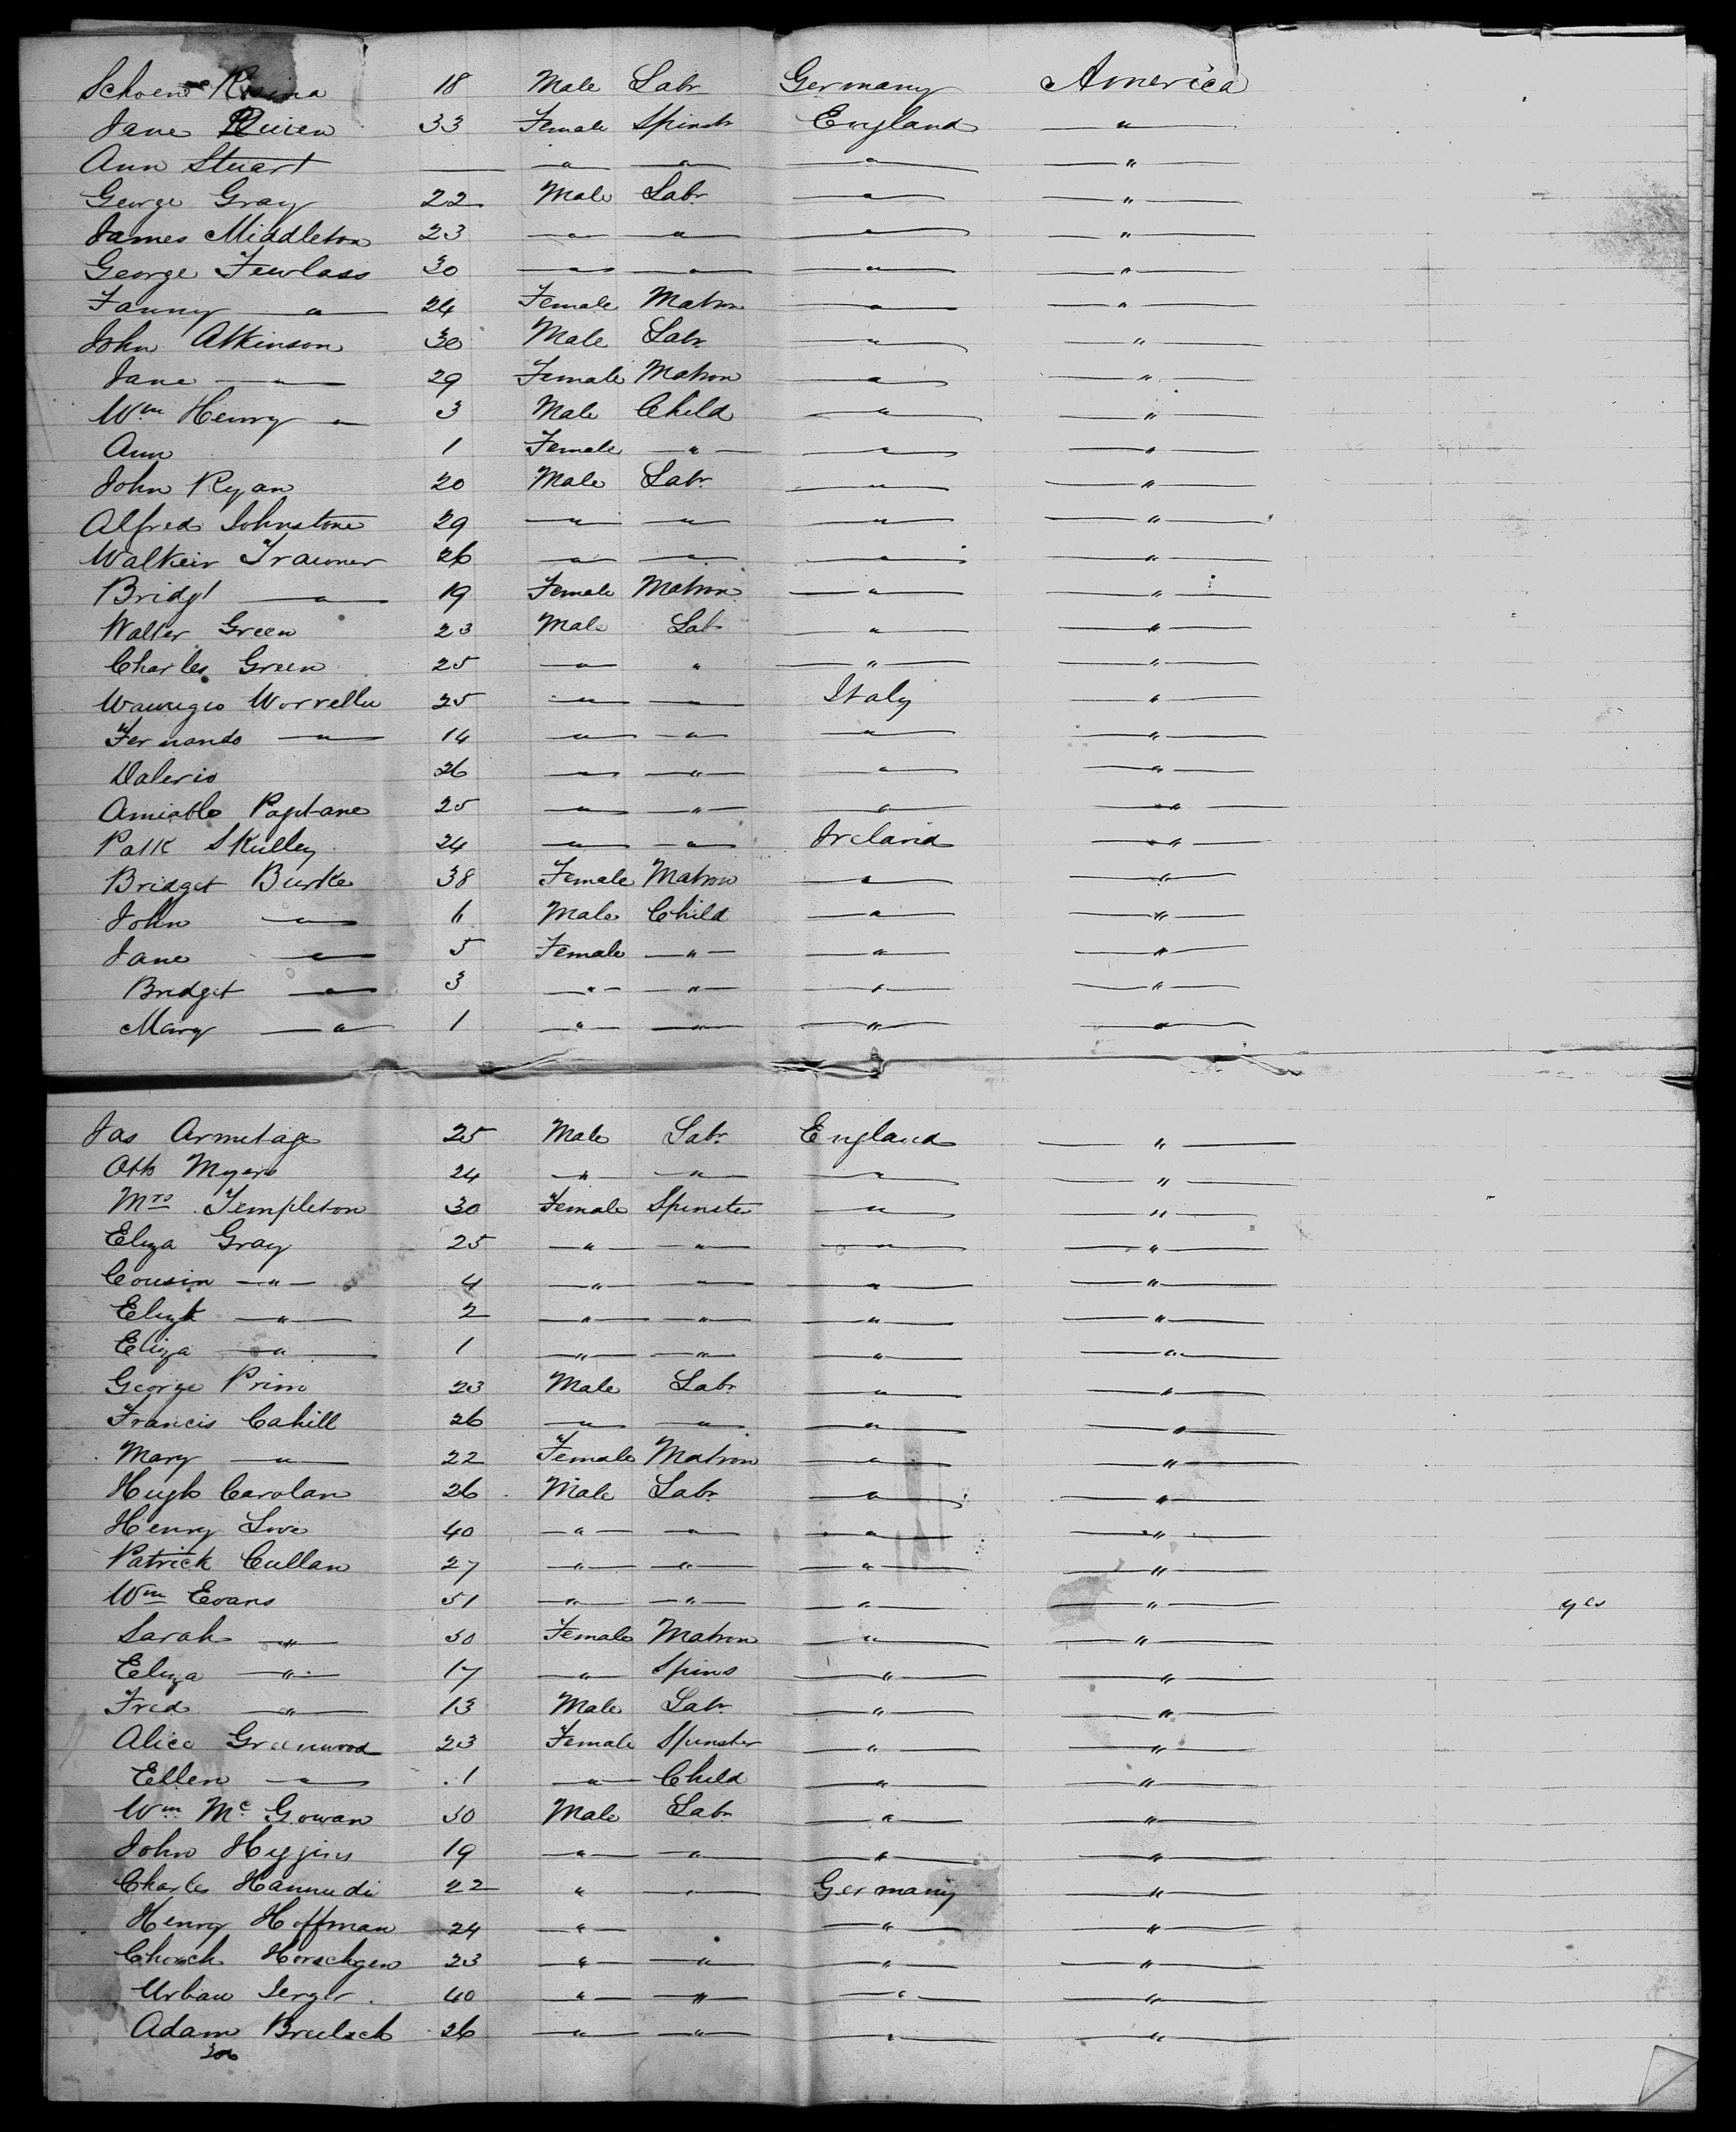 Schoen Rosina 18 Male Labr Germany America
Jane 33 Female Spinstr England "
Ann Stuart — " " " "
George Gray 22 Male Labr " "
James Middleton 23 " " " "
George Fewlass 30 " " " "
Fanny " 24 Female Matron " "
John Atkinson 30 Male Labr " "
Jane " 29 Female Matron " "
Wm Henry " 3 Male Child " "
Ann 1 Female " " "
John Ryan 20 Male Labr " "
Alfred Johnstone 29 " " " "
Walkeir 26 " " " "
Bridgt " 19 Female Matron " "
Walter Green 23 Male Lab " "
Charles Green 25 " " " "
Worrellu 25 " " Italy "
Fernando " 14 " " " "
Valerio 26 " " " "
Amiable 25 " " " "
Patk Skulley 24 " " Ireland "
Bridget Burke 38 Female Matron " "
John " 6 Male Child " "
Jane " 5 Female " " "
Bridget " 3 " " " "
Mary " 1 " " " "
Jas Armitage 25 Male Labr England "
Otto Myers 24 " " " "
Mrs Templeton 30 Female Spinster " "
Eliza Gray 25 " " " "
Cousin " 4 " " " "
Elizth " 2 " " " "
Eliza " 1 " " " "
George Prim 23 Male Labr " "
Francis Cahill 26 " " " "
Mary " 22 Female Matron " "
Hugh Carolan 26 Male Labr " "
Henry Love 40 " " " "
Patrick Cullan 27 " " " "
Wm Evans 51 " " " " yes
Sarah " 50 Female Matron " "
Eliza " 17 " Spins " "
Fred " 13 Male Labr " "
Alice Greenwood 23 Female Spinster " "
Ellen " 1 " Child " "
Wm McGowan 30 Male Labr " "
John Higgins 19 " " " "
Charles 22 " " Germany "
Henry Hoffman 24 " " "
Horschgen 23 " " " "
Urban Jerger 40 " " " "
Adam 26 " " " "